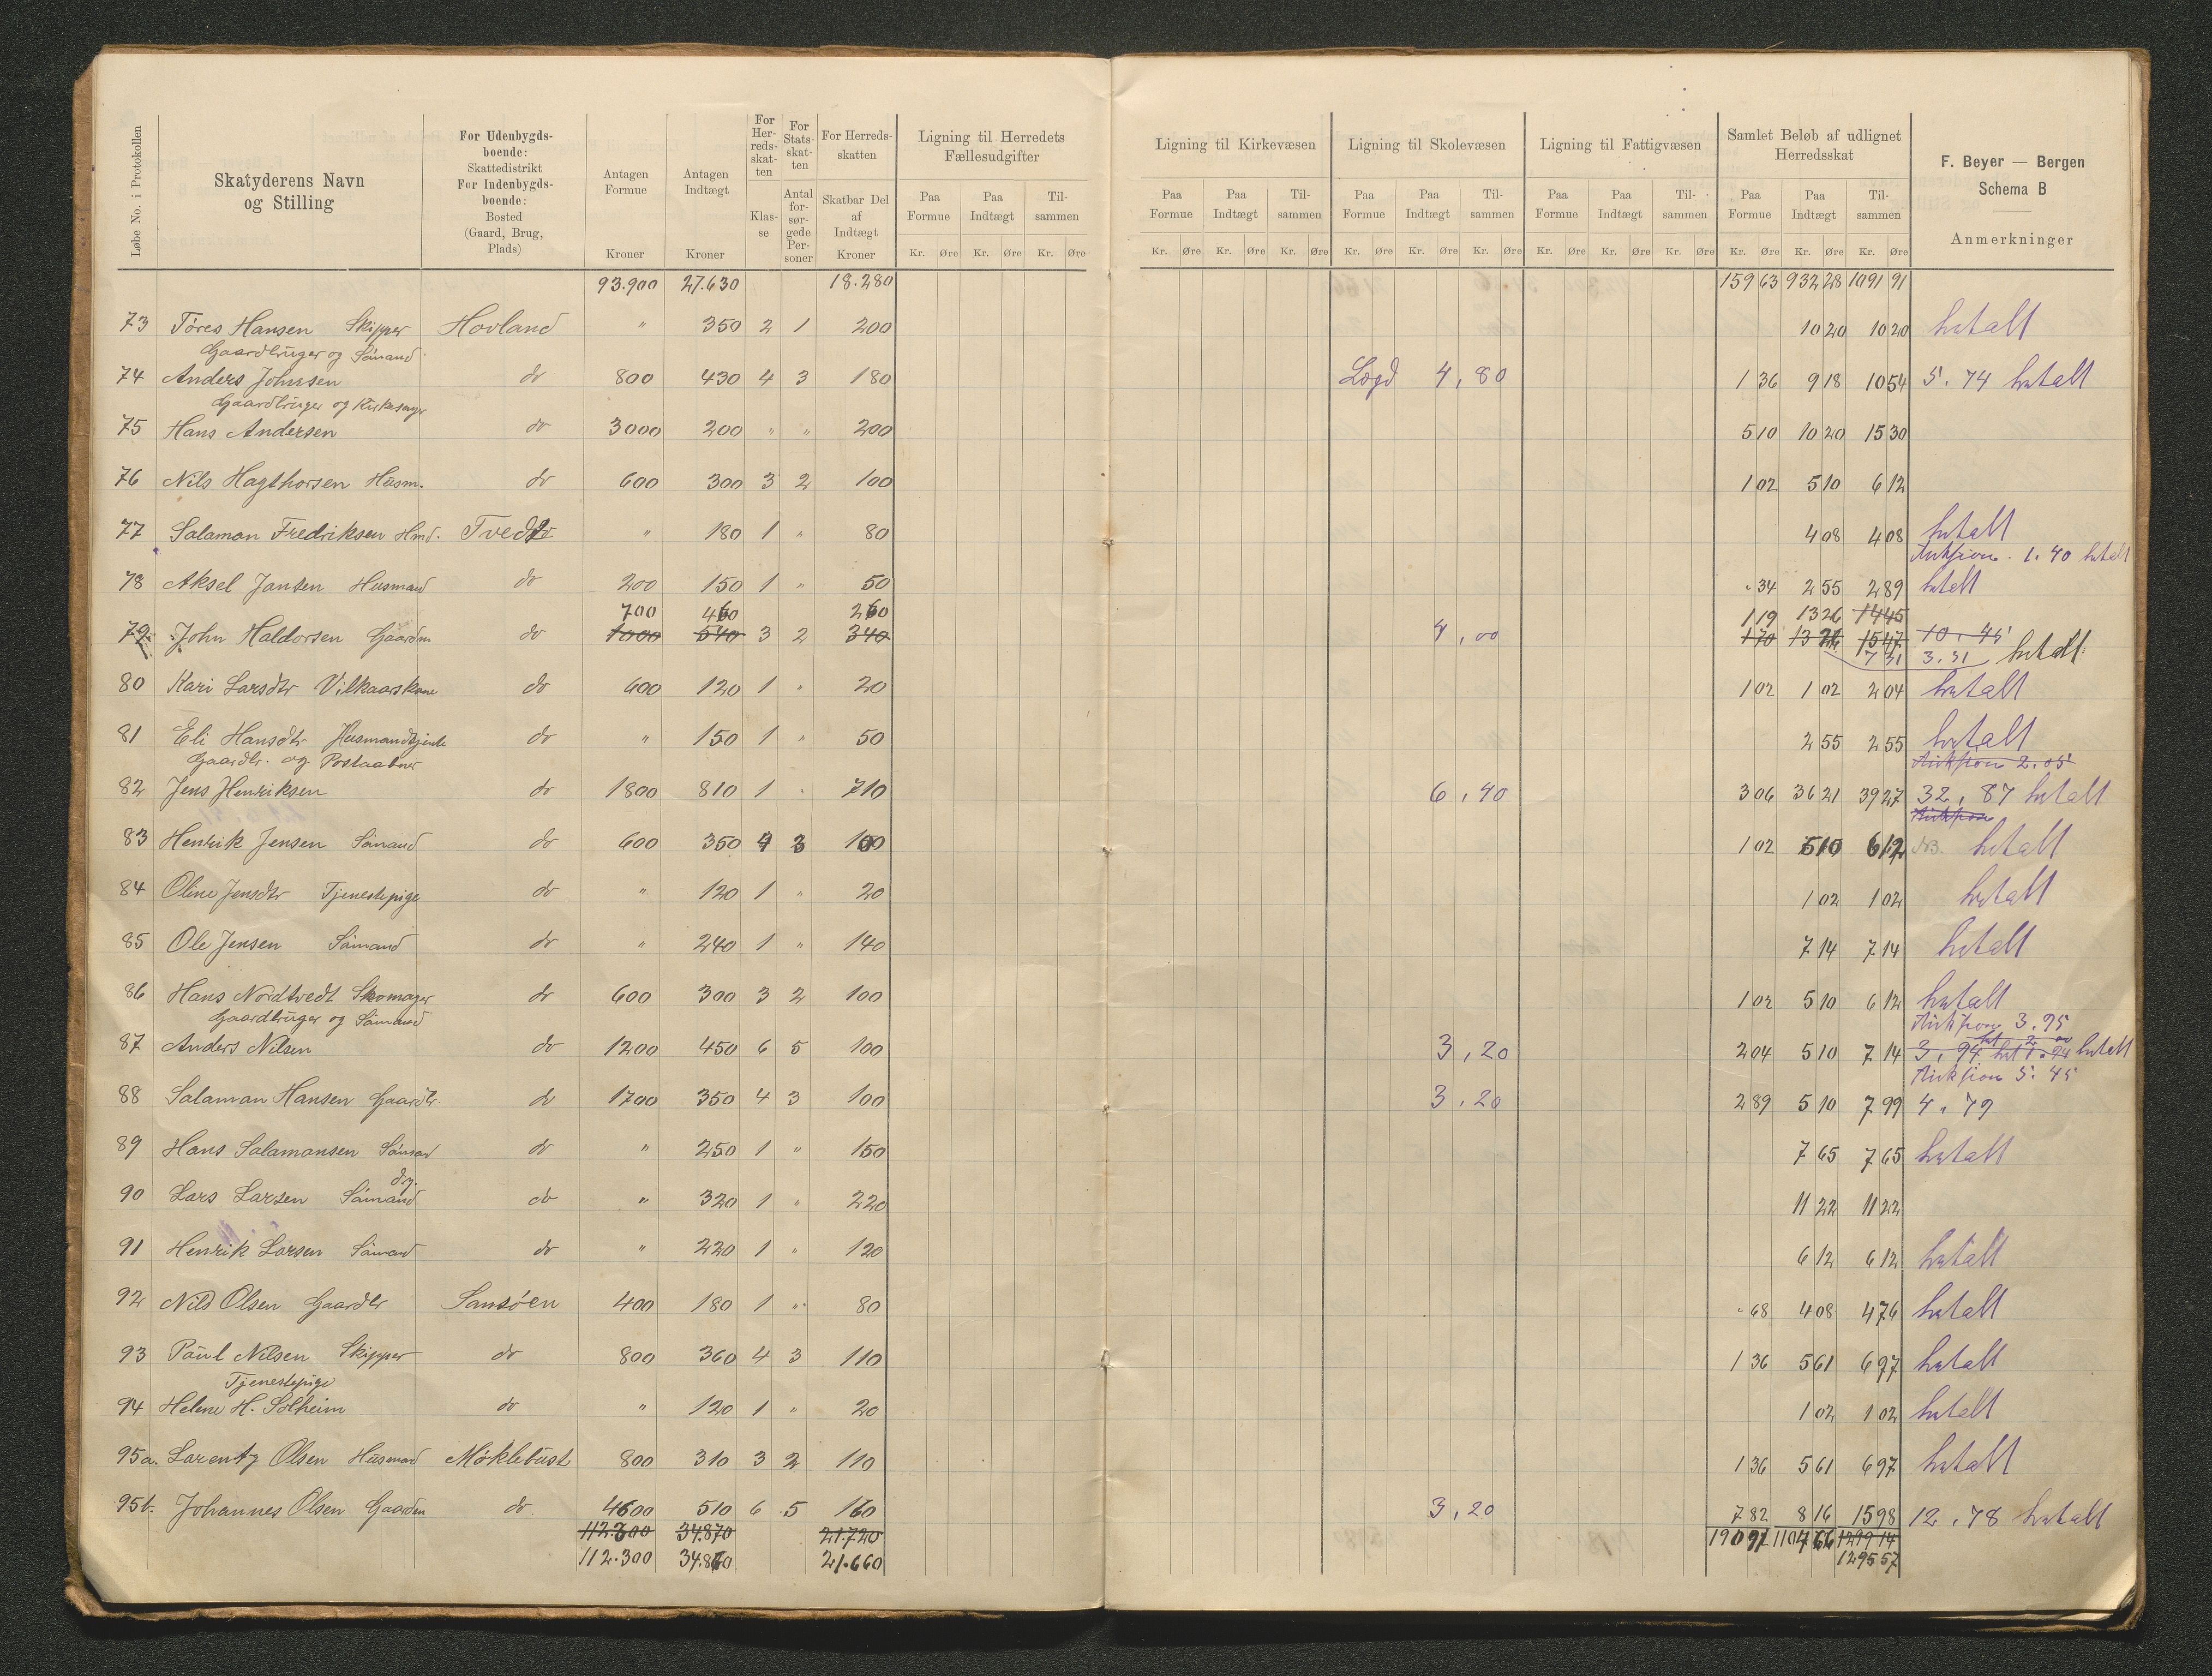 Løbe No. i Protokollen | Skatyderens Navn og Stilling | For Udenbygds-boende: Skattedistrikt For Indenbygds-boende: Bosted (Gaard, Brug, Plads) | Antagen Formue Kroner | Antagen Indtægt Kroner | For Her-reds-skat-ten Klas-se | For Stats-skat-ten Antal for-sør-gede Per-soner | For Herreds-skatten Skatbar Del af Indtægt Kroner | Ligning til Herredets Fællesudgifter | Ligning til Kirkevæsen | Ligning til Skolevæsen | Ligning til Fattigvæsen | Samlet Beløb af udlignet Herredsskat | F. Beyer — Bergen Schema B Anmerkninger
Paa Formue Kr. Øre | Paa Indtægt Kr. Øre | Til-sammen Kr. Øre | Paa Formue Kr. Øre | Paa Indtægt Kr. Øre | Til-sammen Kr. Øre | Paa Formue Kr. Øre | Paa Indtægt Kr. Øre | Til-sammen Kr. Øre | Paa Formue Kr. Øre | Paa Indtægt Kr. Øre | Til-sammen Kr. Øre | Paa Formue Kr. Øre | Paa Indtægt Kr. Øre | Til-sammen Kr. Øre
93.900 27.630 18.280 159 63 932 28 1091 91
73 Tøres Hansen Skipper Hovland " 350 2 1 200 10 20 10 20 betalt
Gaardbruger og Sömand
74 Anders Johnsen do 800 430 4 3 180 Lægd 4,80 1 36 9 18 10 54 5.74 betalt
Gaardbruger og Kirkesanger
75 Hans Andersen do 3000 200 " " 200 5 10 10 20 15 30
76 Nils Hagthorsen Husm. do 600 300 3 2 100 1 02 5 10 6 12
77 Salamon Fredriksen Hmd. Tvedt 180 1 " 80 4 08 4 08 betalt
Auksjon. 1.40 betalt
78 Aksel Jansen Husmand do 200 150 1 " 50 " 34 2 55 2 89 betalt
700 460 260 1 19 13 26 14 45
79. John Haldorsen Gaardm do 1000 540 3 2 340 4,00 1 70 13 15 47 10.45
7 31 3.31 betalt
80 Kari Larsdtr Vilkaarskone do 600 120 1 " 20 1 02 1 02 2 04 betalt
81 Eli Hansdtr Husmandtjente do " 150 1 " 50 2 55 2 55 betalt
Gaardbr. og Postaabner Auksjon 2.05
82 Jens Henriksen do 1800 810 1 " 710 6,40 3 06 36 21 39 27 32,87 betalt
Auksjon
83 Henrik Jensen Sömand do 600 350 4 3 100 1 02 5 10 6 12 betalt
84 Oline Jensdtr Tjenestepige do " 120 1 " 20 1 02 1 02 betalt
85 Ole Jensen Sömand do " 240 1 " 140 7 14 7 14 betalt
86 Hans Nordtvedt Skomager do 600 300 3 2 100 1 02 5 10 6 12 betalt
Gaardbruger og Sömand Auksjon 3.95
87 Anders Nilsen do 1200 450 6 5 100 3,20 2 04 5 10 7 14 3,94 bet 1.94 betalt
Auksjon 5.45
88 Salaman Hansen Gaardbr. do 1700 350 4 3 100 3.20 2 89 5 10 7 99 4,79
89 Hans Salamansen Sömand do " 250 1 " 150 7 65 7 65 betalt
90 Lars Larsen Sömand do " 320 1 " 220 11 22 11 22
91 Henrik Larsen Sömand do " 220 1 " 120 6 12 6 12 betalt
92 Nils Olsen Gaardbr Sansöen 400 180 1 " 80 " 68 4 08 4 76 betalt
93 Paul Nilsen Skipper do 800 360 4 3 110 1 36 5 61 6 97 betalt
Tjenestepige
94 Helene H. Solheim do " 120 1 " 20 1 02 1 02 betalt
95a. Larentz Olsen Husmand Möklebust 800 310 3 2 110 1 36 5 61 6 97 betalt
95b. Johannes Olsen Gaardm do 4600 510 6 5 160 3,20 7 82 8 16 15 98 12.78 betalt
112.600 34.870 21.720 190 97 1104 66 1299 14
112.300 34.860 21.660 1295 57